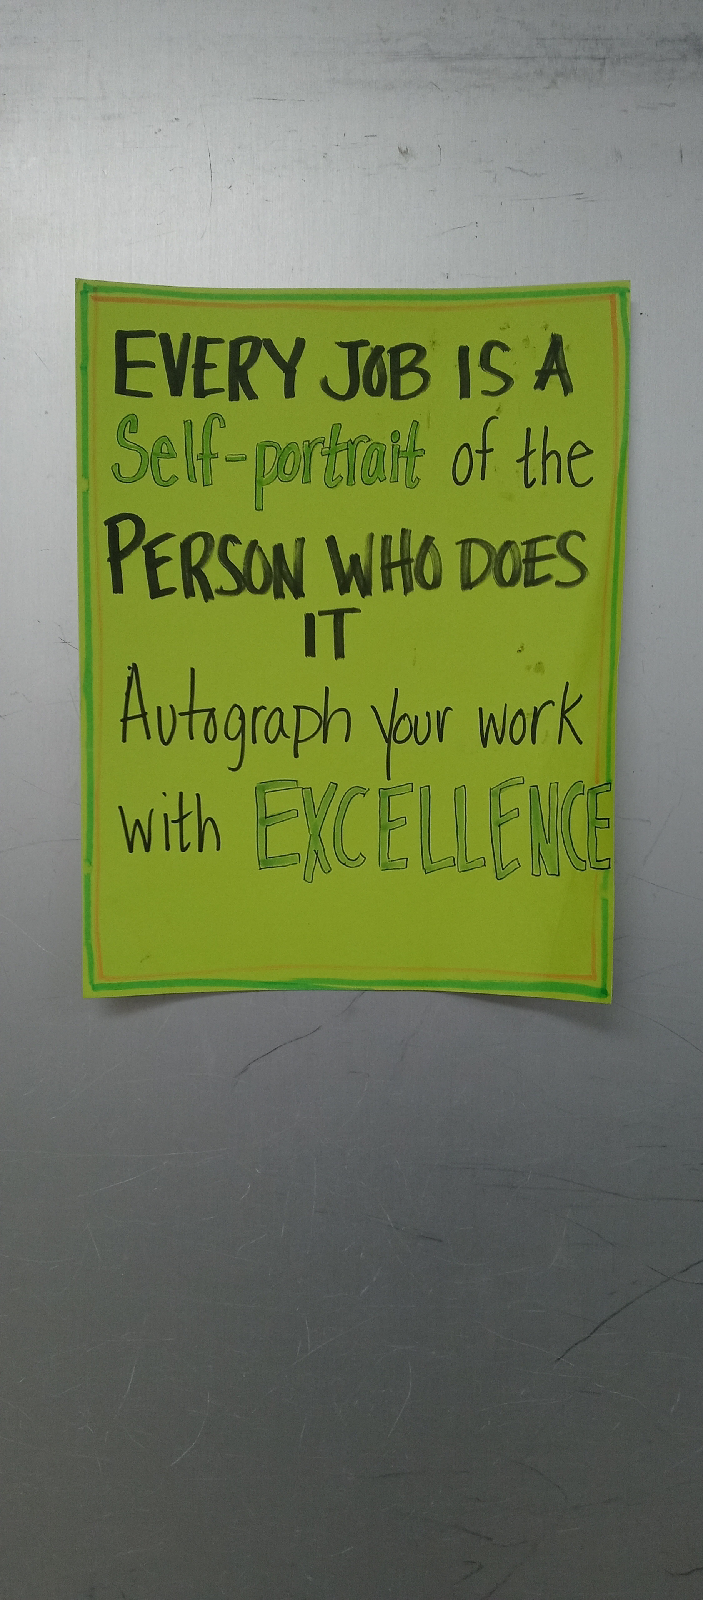 EVERY JOB IS A
Self-portrait of the
PERSON WHO DOES
IT
Autograph your work
with EXCELLENCE